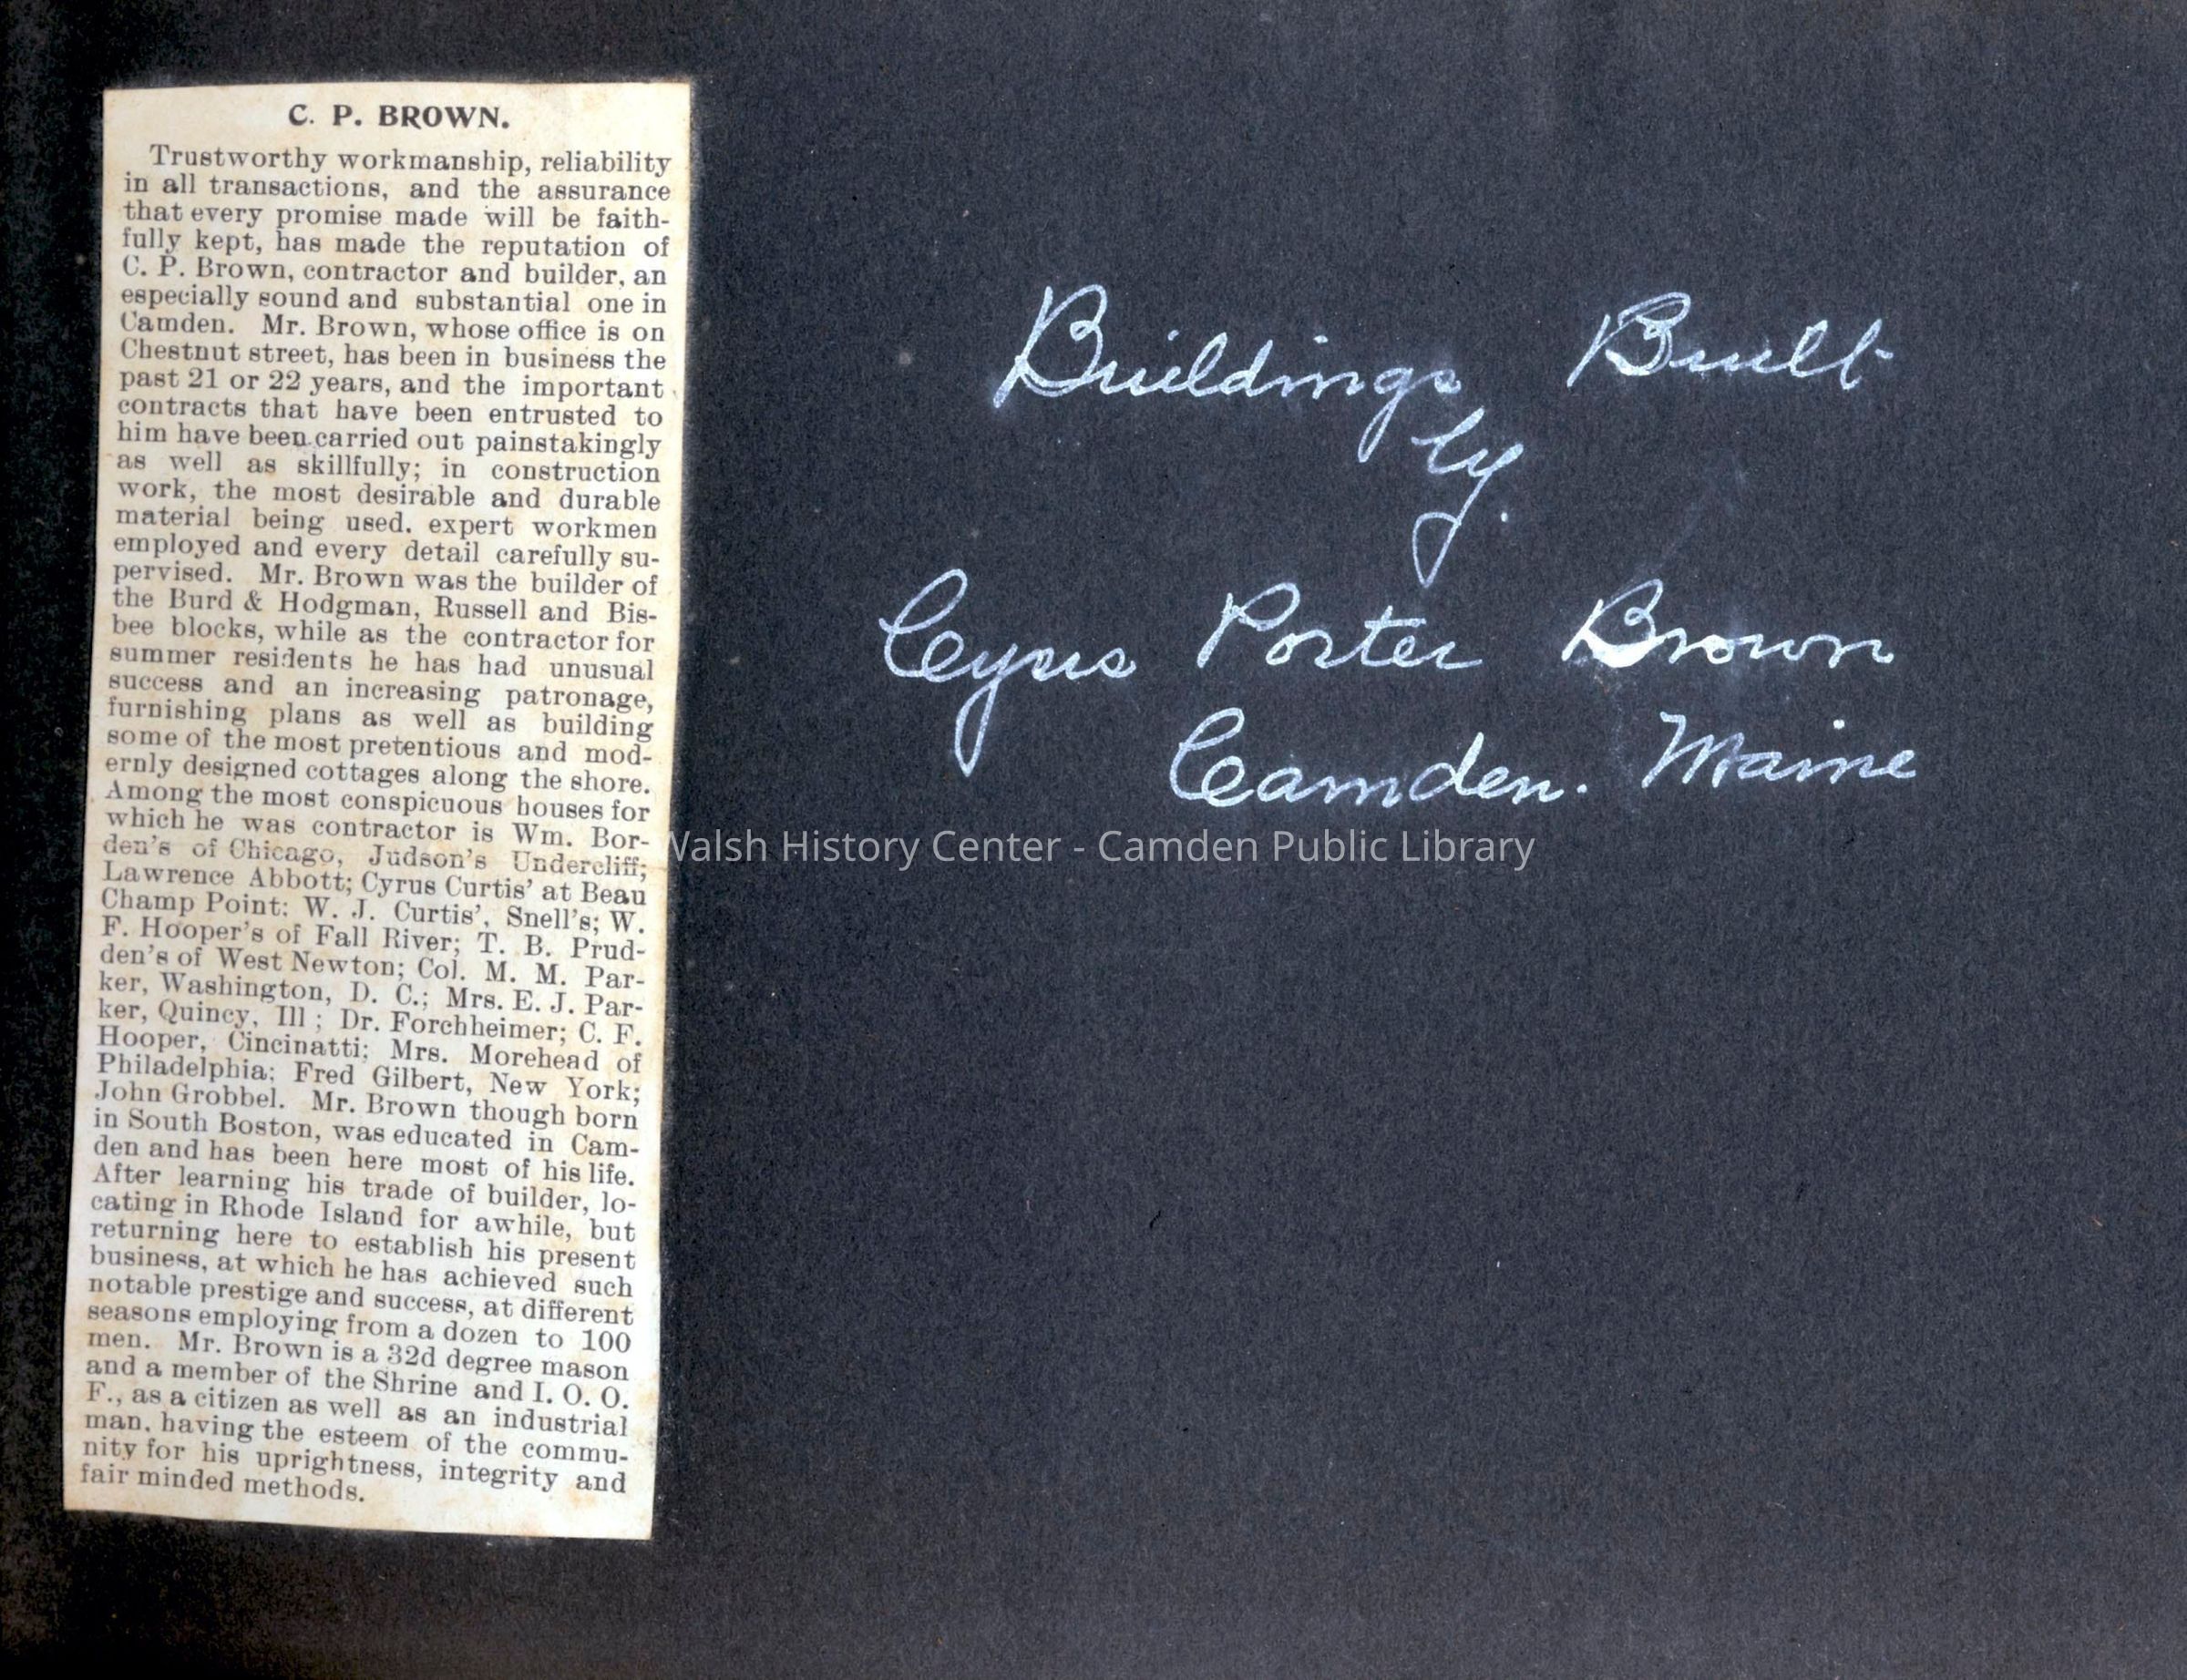 C. P. BROWN.
Trustworthy workmanship, reliability
in all transactions, and the assurance
that every promise made will be faith-
fully kept, has made the reputation of
C. P. Brown, contractor and builder, an
especially sound and substantial one in
Camden. Mr. Brown, whose office is on
Chestnut street, has been in business the
past 21 or 22 years, and the important
contracts that have been entrusted to
him have been carried out painstakingly
as well as skillfully; in construction
work, the most desirable and durable
material being used. expert workmen
employed and every detail carefully su-
pervised. Mr. Brown was the builder of
the Burd & Hodgman, Russell and Bis-
bee blocks, while as the contractor for
summer residents he has had unusual
success and an increasing patronage,
furnishing plans as well as building
some of the most pretentious and mod-
ernly designed cottages along the shore.
Among the most conspicuous houses for
which he was contractor is Wm. Bor-
den's of Chicago, Judson's Undercliff;
Lawrence Abbott; Cyrus Curtis' at Beau
Champ Point: W. J. Curtis', Snell's; W.
F. Hooper's of Fall River; T. B. Prud-
den's of West Newton; Col. M. M. Par-
ker, Washington, D. C.; Mrs. E. J. Par-
ker, Quincy, Ill ; Dr. Forchheimer; C. F.
Hooper, Cincinatti; Mrs. Morehead of
Philadelphia; Fred Gilbert, New York;
John Grobbel. Mr. Brown though born
in South Boston, was educated in Cam-
den and has been here most of his life.
After learning his trade of builder, lo-
cating in Rhode Island for awhile, but
returning here to establish his present
business, at which he has achieved such
notable prestige and success, at different
seasons employing from a dozen to 100
men. Mr. Brown is a 32d degree mason
and a member of the Shrine and I. O. O.
F., as a citizen as well as an industrial
man, having the esteem of the commu-
nity for his uprightness, integrity and
fair minded methods.
Buildings Built
by.
Cyrus Porter Brown
Camden. Maine
Walsh History Center - Camden Public Library